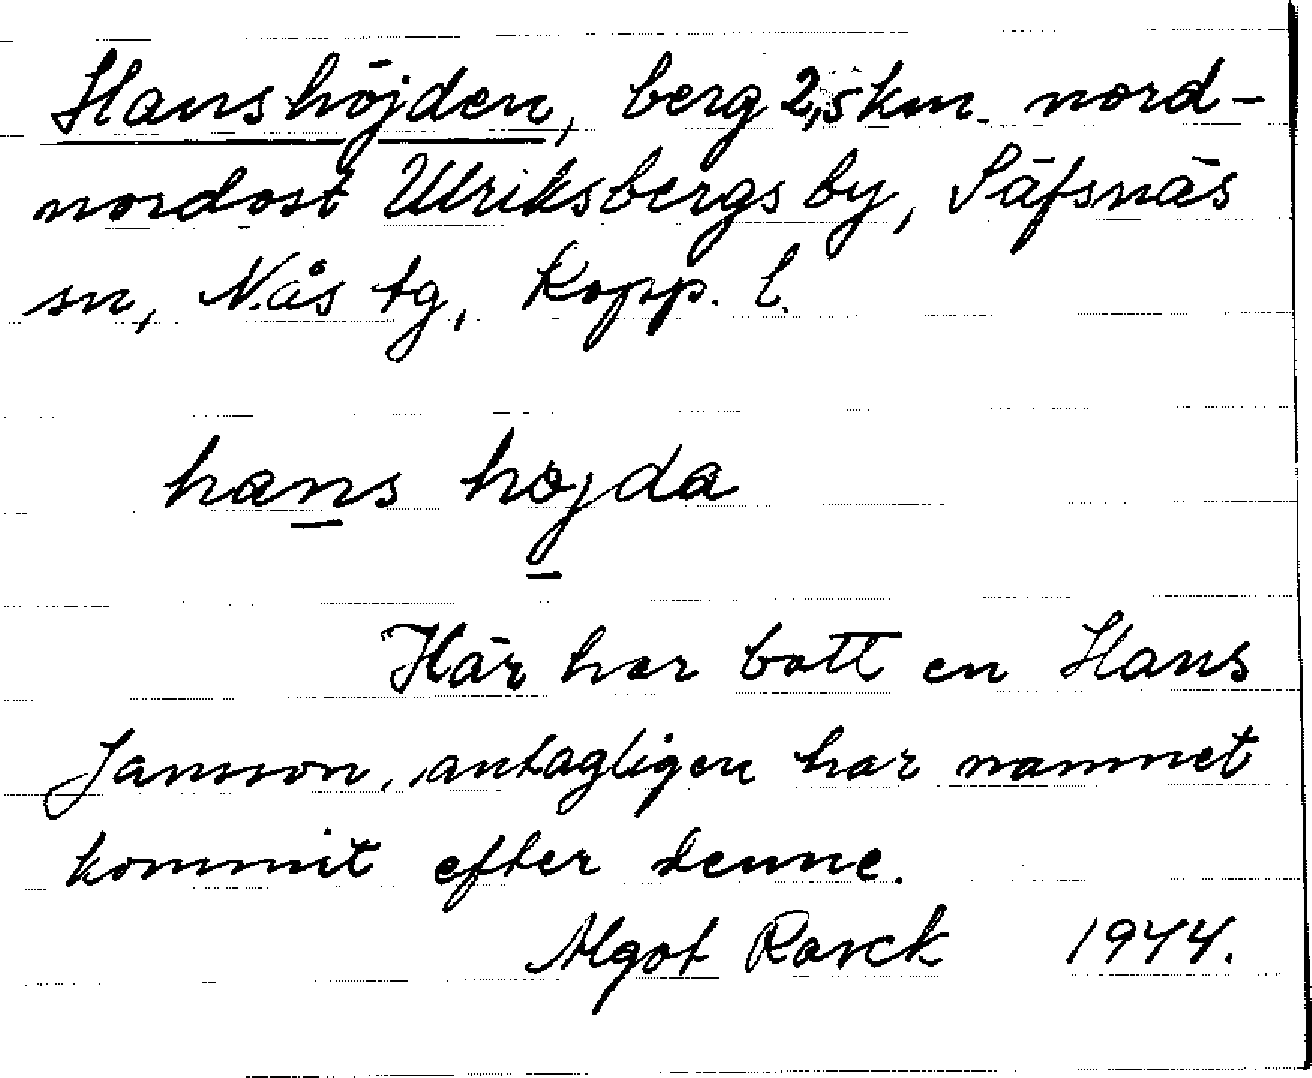 Hanshöjden, berg 2,5 km. nord-
nordost Ulriksbergs by, Säfsnäs
sn, Nås tg, Kopp. l.
hans höjda
Här har bott en Hans
Jansson, antagligen har namnet
kommit efter denne.
Algot Rosck 1944.